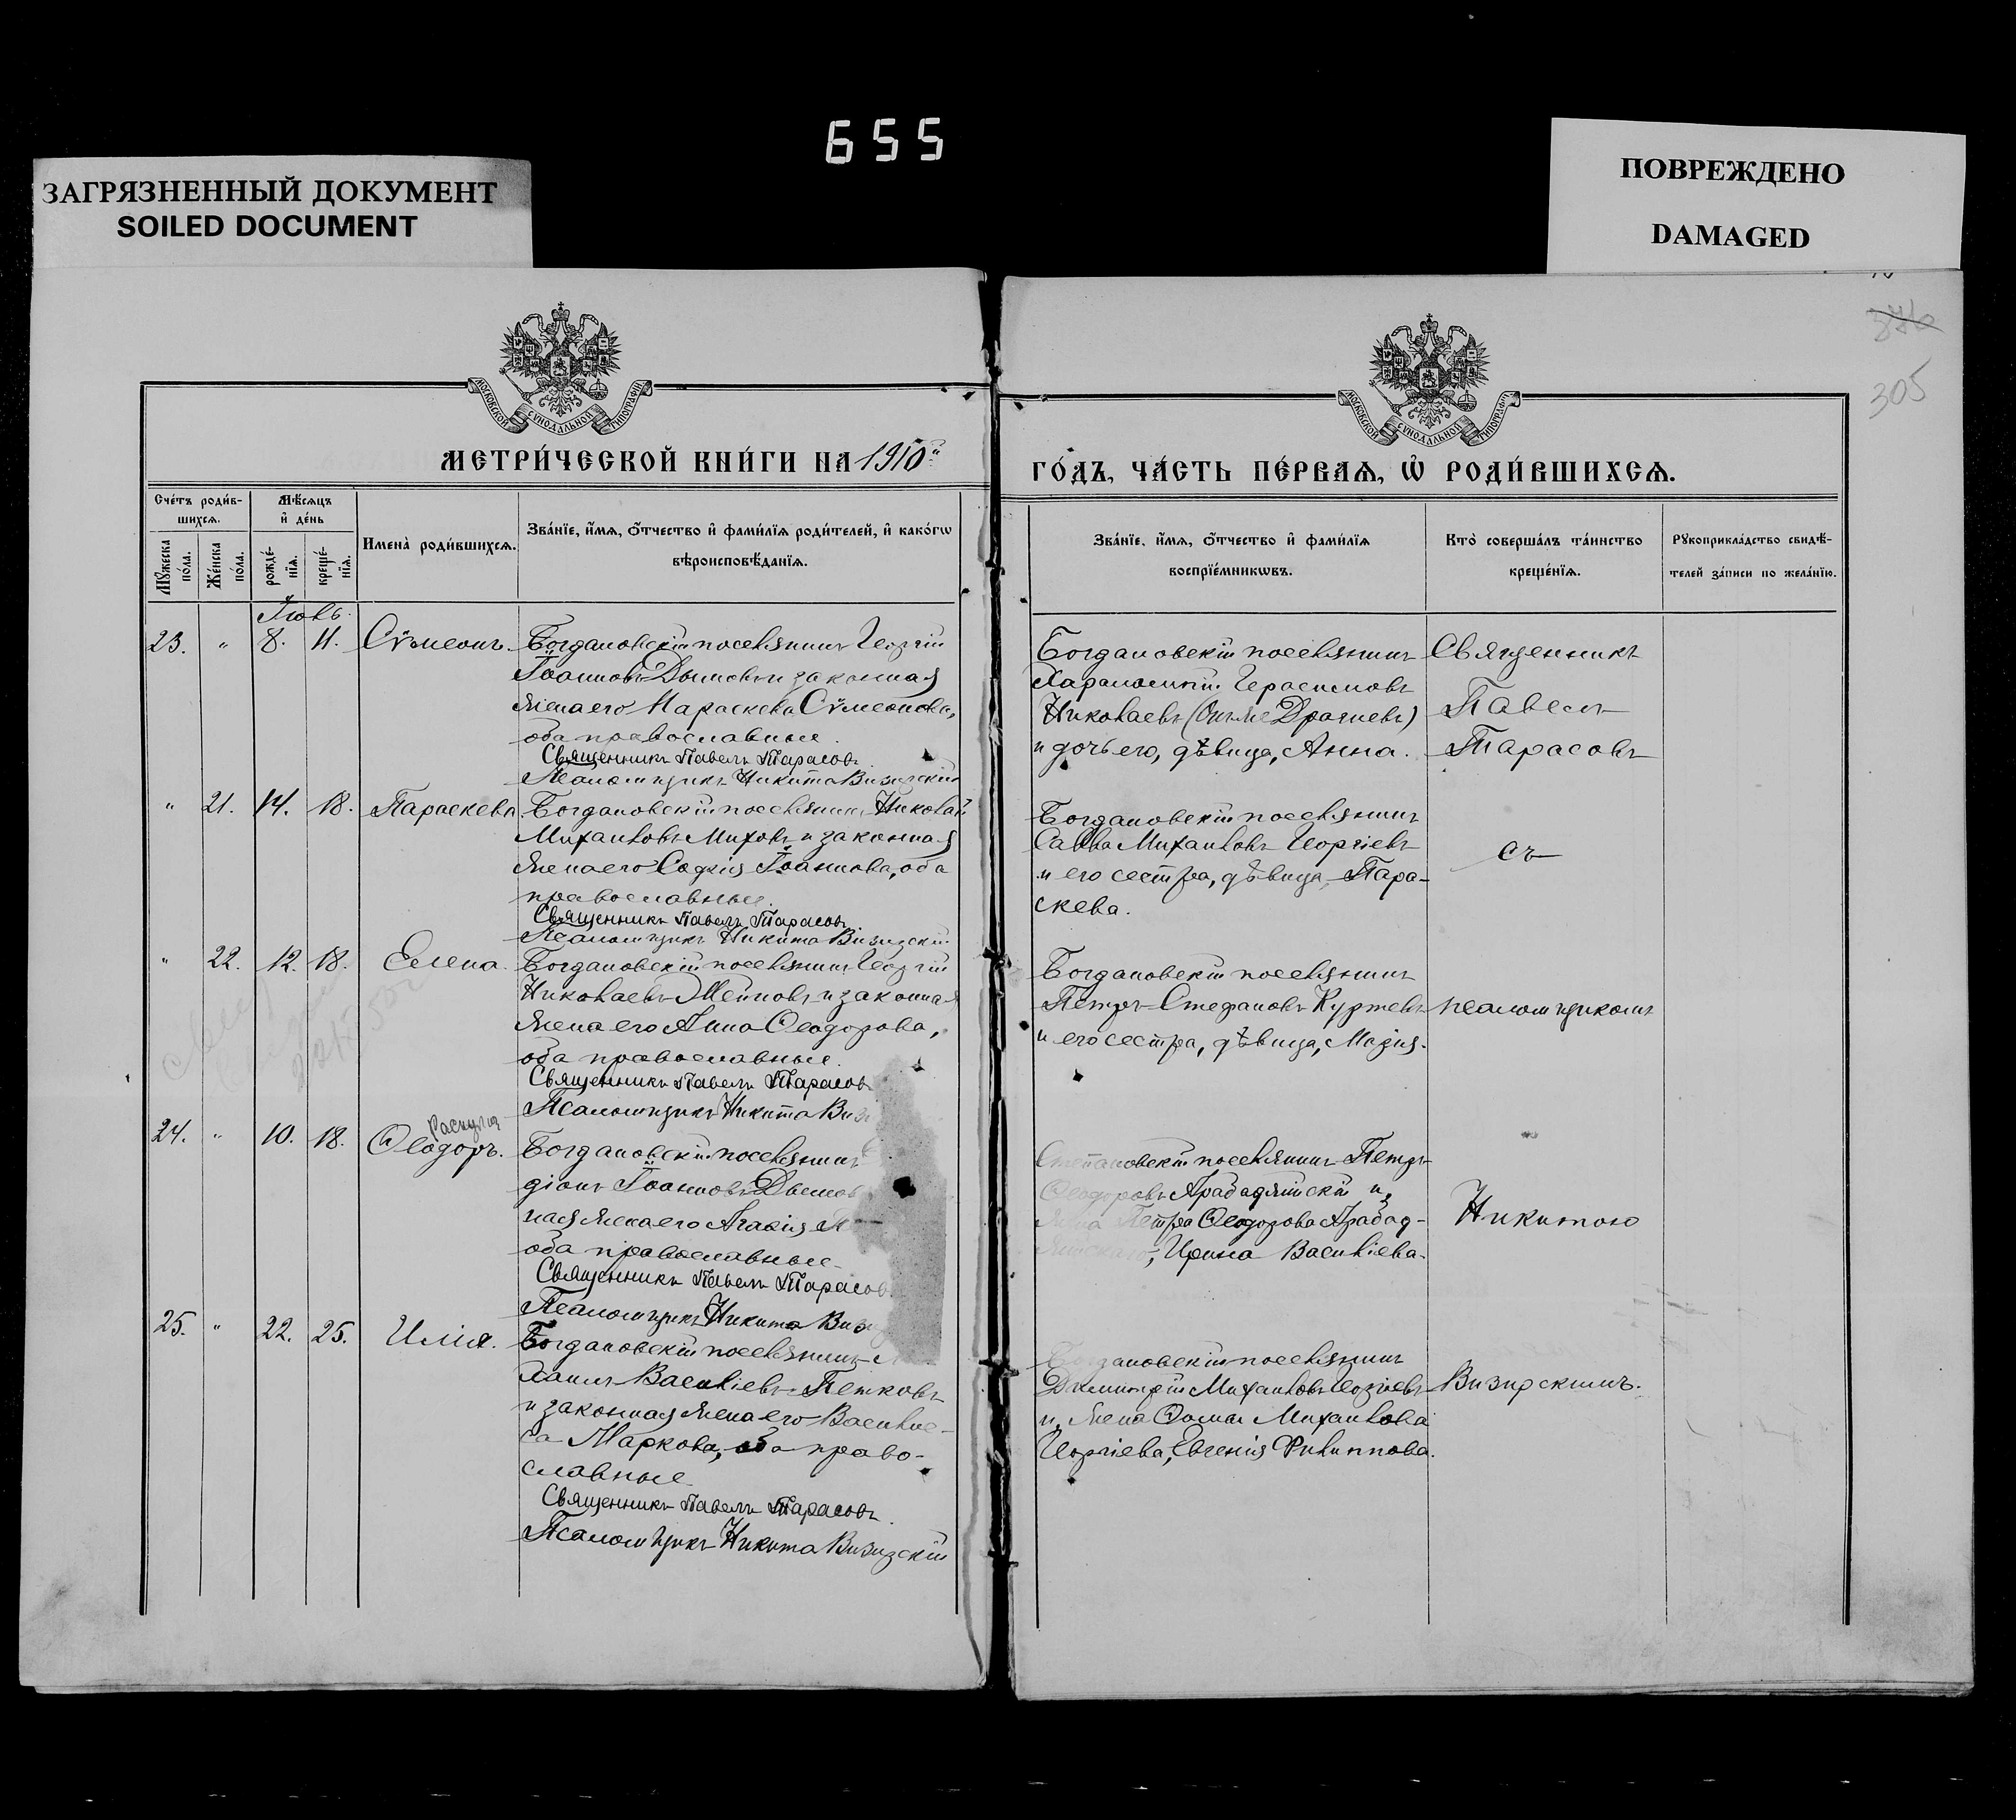 655
ЗАГРЯЗНЕННЫЙ ДОКУМЕНТ
SOILED DOCUMENT
ПОВРЕЖДЕНО
DAMAGED
376
305
МОСКОВСКОЙ СУНОДАЛЬНОЙ ТИПОГРАФІИ
МОСКОВСКОЙ СУНОДАЛЬНОЙ ТИПОГРАФІИ
МЕТРИ́ЧЕСКОЙ КНИ́ГИ НА 1910й
ГО́ДЪ, ЧА́СТЬ ПЕ́РВАѦ, Ѡ҆ РОДИ́ВШИХСѦ.
Сче́тъ роди́в-
шихсѧ.
Мѣ́сѧцъ
и҆ де́нь
Мꙋ́жеска
по́ла.
Же́нска
по́ла.
рожде́-
нїѧ.
креще́-
нїѧ.
И҆мена̀ роди́вшихсѧ.
Зва́нїе, и҆́мѧ, ѻ҆́тчество и҆ фами́лїѧ роди́телей, и҆ како́гѡ
вѣроисповѣ́данїѧ.
Зва́нїе, и҆́мѧ, ѻ҆́тчество и҆ фами́лїѧ
воспрїе́мникѡвъ.
Кто̀ соверша́лъ та́инство
креще́нїѧ.
Рꙋкоприкла́дство свидѣ́-
телей за́писи по жела́нїю.
Іюль.
23. " 8. 11. Сѵмеонъ. Богдановскій поселянинъ Георгій
Іоанновъ Дымовъ и законная
жена его Параскева Сѵмеонова,
оба православные.
Священникъ Павелъ Тарасовъ
Псаломщикъ Никита Визирскій
Богдановскій поселянинъ
Харалампій Герасимовъ
Николаевъ (онъ же Драгневъ)
и дочь его, дѣвица, Анна.
Священникъ
Павелъ
Тарасовъ
" 21. 14. 18. Параскева Богдановскій поселянинъ Николай
Михаиловъ Миховъ и законная
жена его Софія Іоаннова, оба
православные.
Священникъ Павелъ Тарасовъ
Псаломщикъ Никита Визирскій
Богдановскій поселянинъ
Савва Михаиловъ Георгіевъ
и его сестра, дѣвица, Пара-
скева.
съ
" 22. 12. 18. Елена. Богдановскій поселянинъ Георгій
Николаевъ и законная
жена его Анна Ѳеодорова,
оба православные.
Священникъ Павелъ Тарасовъ
Псаломщикъ Никита Визи
Богдановскій поселянинъ
Петръ Стефановъ Куртевъ
и его сестра, дѣвица, Марія.
псаломщикомъ
24. " 10. 18. Ѳеодоръ. Богдановскій поселянинъ
діонъ Іоанновъ Дымов
ная жена его Агаѳія
оба православные.
Священникъ Павелъ Тарасов
Псаломщикъ Никита Визи
поселянинъ Петръ
Ѳеодоровъ Арабаджійскій и
жена Петра Ѳеодорова Арабад-
жійскаго, Ирина Василіева.
Никитою
25. " 22. 25. Илія. Богдановскій поселянинъ
Василіевъ Петковъ
и законная жена его Василис-
са Маркова, оба право-
славные.
Священникъ Павелъ Тарасовъ.
Псаломщикъ Никита Визирскій
Богдановскій поселянинъ
Димитрій Михаиловъ Георгіевъ
и жена Ѳомы Михаилова
Георгіева, Евгенія Филиппова.
Визирскимъ.